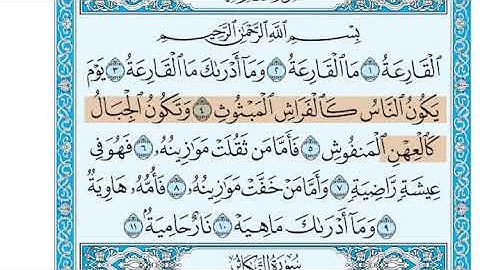 بِسْمِ اللَّهِ الرَّحْمَٰنِ الرَّحِيمِ
الْقَارِعَةُ ١ مَا الْقَارِعَةُ ٢ وَمَا أَدْرَىٰكَ مَا الْقَارِعَةُ ٣ يَوْمَ
يَكُونُ النَّاسُ كَالْفَرَاشِ الْمَبْثُوثِ ٤ وَتَكُونُ الْجِبَالُ
كَالْعِهْنِ الْمَنْفُوشِ ٥ فَأَمَّا مَنْ ثَقُلَتْ مَوَٰزِينُهُۥ ٦ فَهُوَ فِي
عِيشَةٍ رَّاضِيَةٍ ٧ وَأَمَّا مَنْ خَفَّتْ مَوَٰزِينُهُۥ ٨ فَأُمُّهُۥ هَاوِيَةٌ
٩ وَمَا أَدْرَىٰكَ مَا هِيَهْ ١٠ نَارٌ حَامِيَةٌ ١١
سُورَةُ التَّكَاثُرِ